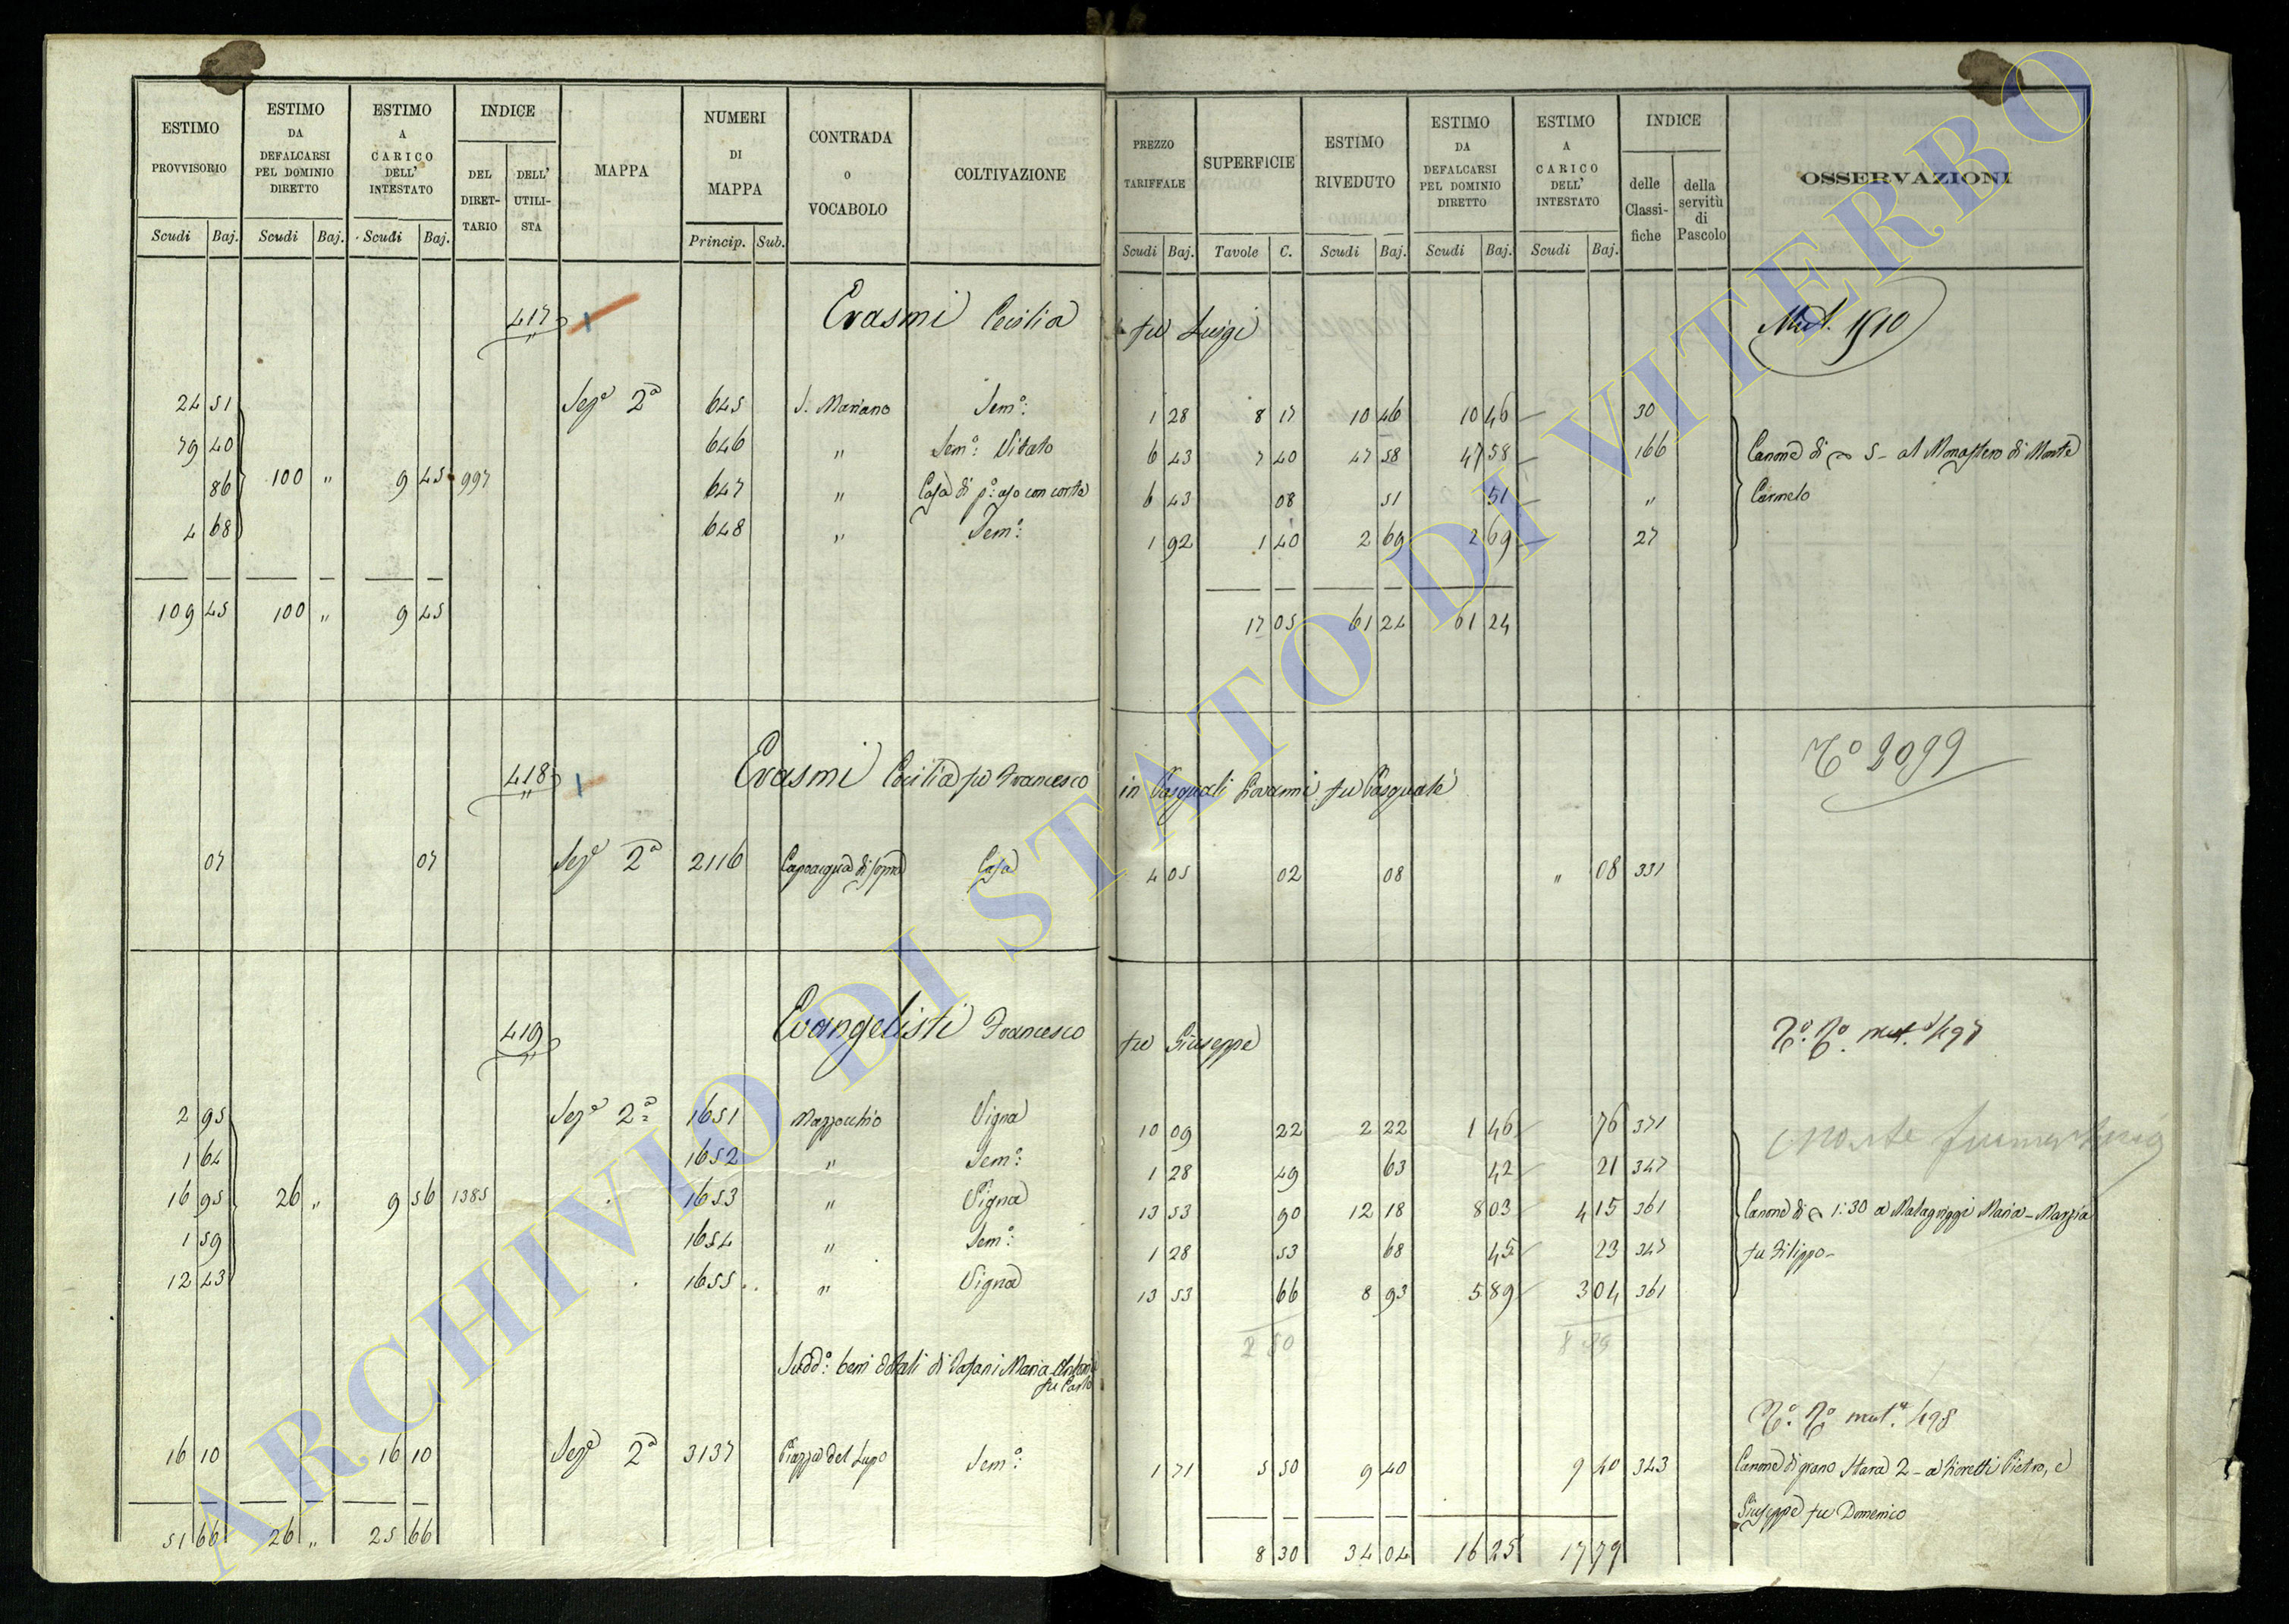 ESTIMO PROVVISORIO
Scudi Baj.
ESTIMO DA DEFALCARSI PEL DOMINIO DIRETTO
Scudi Baj.
ESTIMO A CARICO DELL' INTESTATO
Scudi Baj.
INDICE
DEL DIRETTARIO
DELL' UTILISTA
MAPPA
NUMERI DI MAPPA
Princip. Sub.
CONTRADA O VOCABOLO
COLTIVAZIONE
PREZZO TARIFFALE
Scudi Baj.
SUPERFICIE
Tavole C.
ESTIMO RIVEDUTO
Scudi Baj.
ESTIMO DA DEFALCARSI PEL DOMINIO DIRETTO
Scudi Baj.
ESTIMO A CARICO DELL' INTESTATO
Scudi Baj.
INDICE
delle Classifiche
della servitù di Pascolo
OSSERVAZIONI
417 1 Erasmi Cecilia fu Luigi Mut. 1910
24 51 Seze 2a 645 S. Mariano Sem.o: 1 28 8 17 10 46 10 46 30
79 40 646 " Sem.o: Vitato 6 43 7 40 47 58 47 58 166 Canone di 5 - al Monastero di Monte
86 100 " 9 45 997 647 " Casa di p.o: uso con corte 6 43 08 51 51 " Carmelo
4 68 648 " Sem.o: 1 92 1 40 2 69 2 69 27
109 45 100 " 9 45 17 05 61 24 61 24
418 1 Erasmi Cecilia fu Francesco in Pasquali Giovanni fu Pasquale No 2099
07 07 Seze 2a 2116 Capoacqua di sopra Casa 4 05 02 08 " 08 331
419 Evangelisti Francesco fu Giuseppe No. No. mut. 497
2 95 Seze 2a 1651 Mazzocchio Vigna 10 09 22 2 22 1 46 76 371
1 64 1652 " Sem.o: 1 28 49 63 42 21 347
16 95 26 " 9 56 1385 1653 " Vigna 13 53 90 12 18 8 03 4 15 361 Canone di 1:30 a Maria - Marzia
1 59 1654 " Sem.o: 1 28 53 68 45 23 347 fu Filippo -
12 43 1655 " Vigna 13 53 66 8 93 5 89 3 04 361
2 80 8 39
Sudd.o: beni dotali di Maria Antonia
fu Carlo
No. No. mut.a 498
16 10 16 10 Seze 2a 3137 Piazza del Lupo Sem.o: 1 71 5 50 9 40 9 40 343 Canone di grano Stara 2 - a Fioretti Pietro, e
Giuseppe fu Domenico
51 66 26 " 25 66 8 30 34 04 16 25 17 79
ARCHIVIO DI STATO DI VITERBO